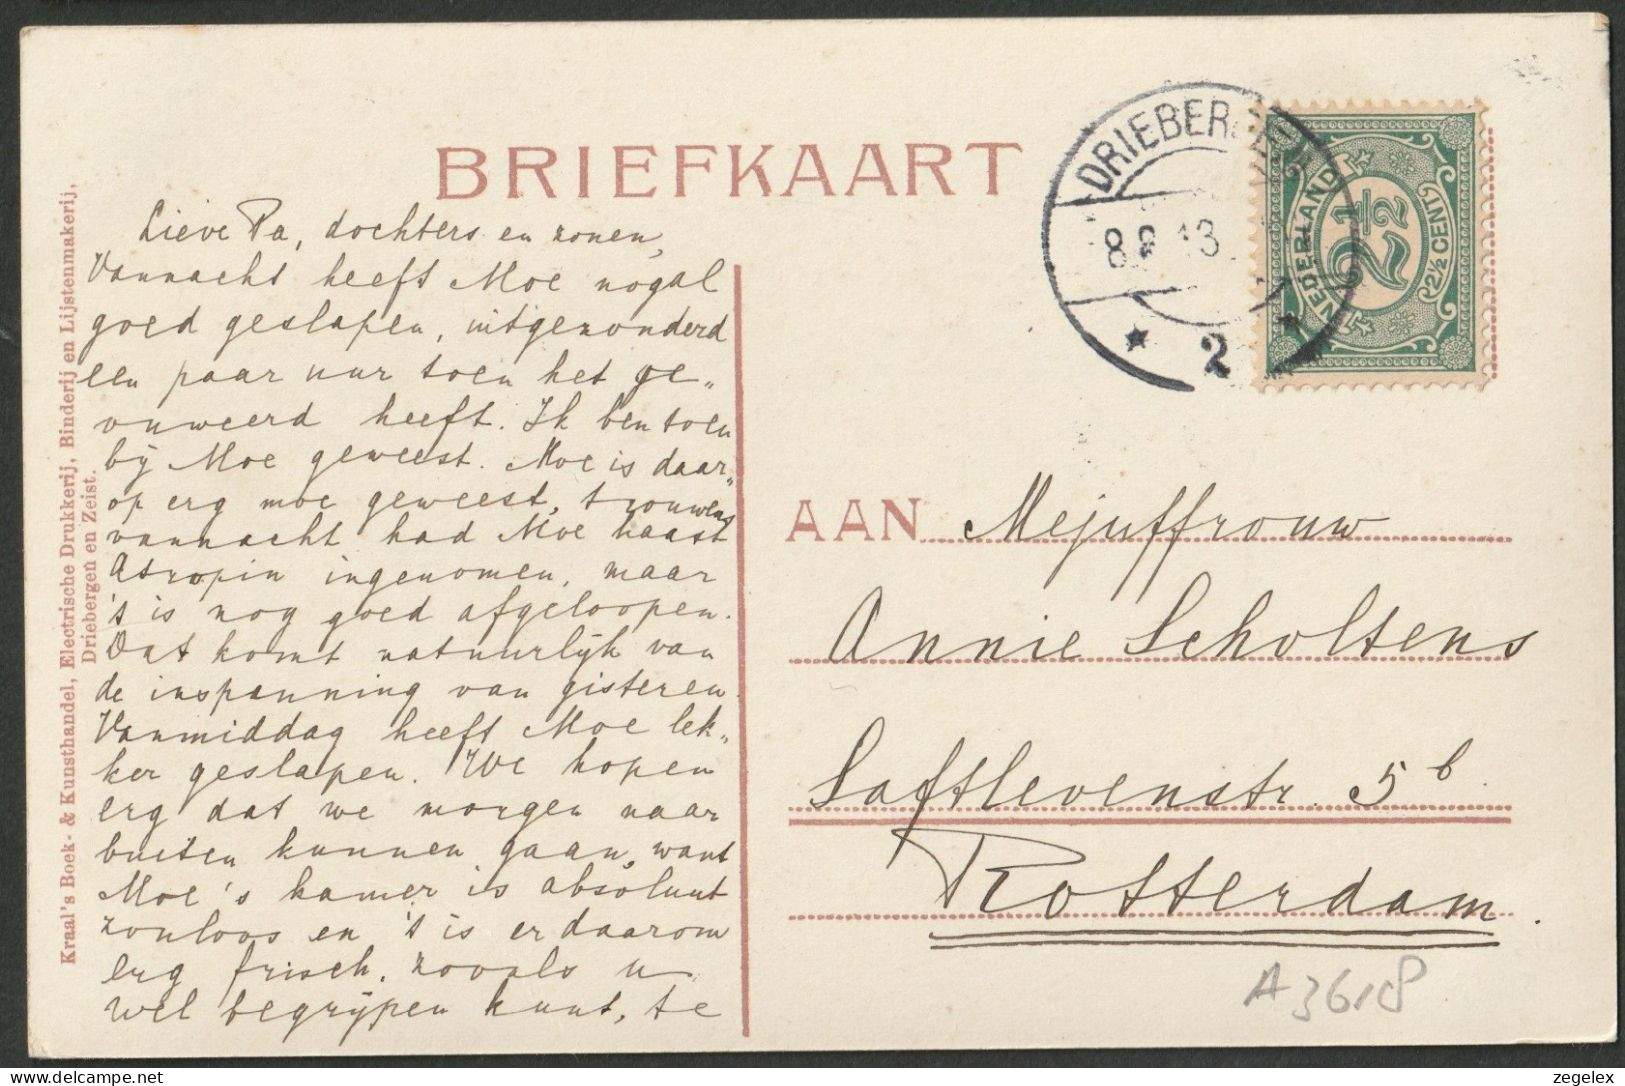 BRIEFKAART
DRIEBERGEN
8.8.13
2
NEDERLAND
2½
2½ CENT
Kraal's Boek- & Kunsthandel, Electrische Drukkerij, Binderij en Lijstenmakerij,
Driebergen en Zeist.
Lieve Pa, dochters en zonen,
Vannacht heeft Moe nogal
goed geslapen, uitgezonderd
een paar uur toen het ge„
onweerd heeft. Ik ben toen
bij Moe geweest. Moe is daar„
op erg moe geweest, trouwens
vannacht had Moe haast
Atropin ingenomen, maar
's is nog goed afgeloopen.
Dat komt natuurlijk van
de inspanning van gisteren.
Vanmiddag heeft Moe lek„
ker geslapen. We hopen
erg dat we morgen naar
buiten kunnen gaan, want
Moe's kamer is absoluut
zonloos en 't is er daarom
erg frisch, zooals u
wel begrijpen kunt, te
AAN Mejuffrouw
Annie Scholtens
Saftlevenstr. 5b
Rotterdam.
A3618
zegelex